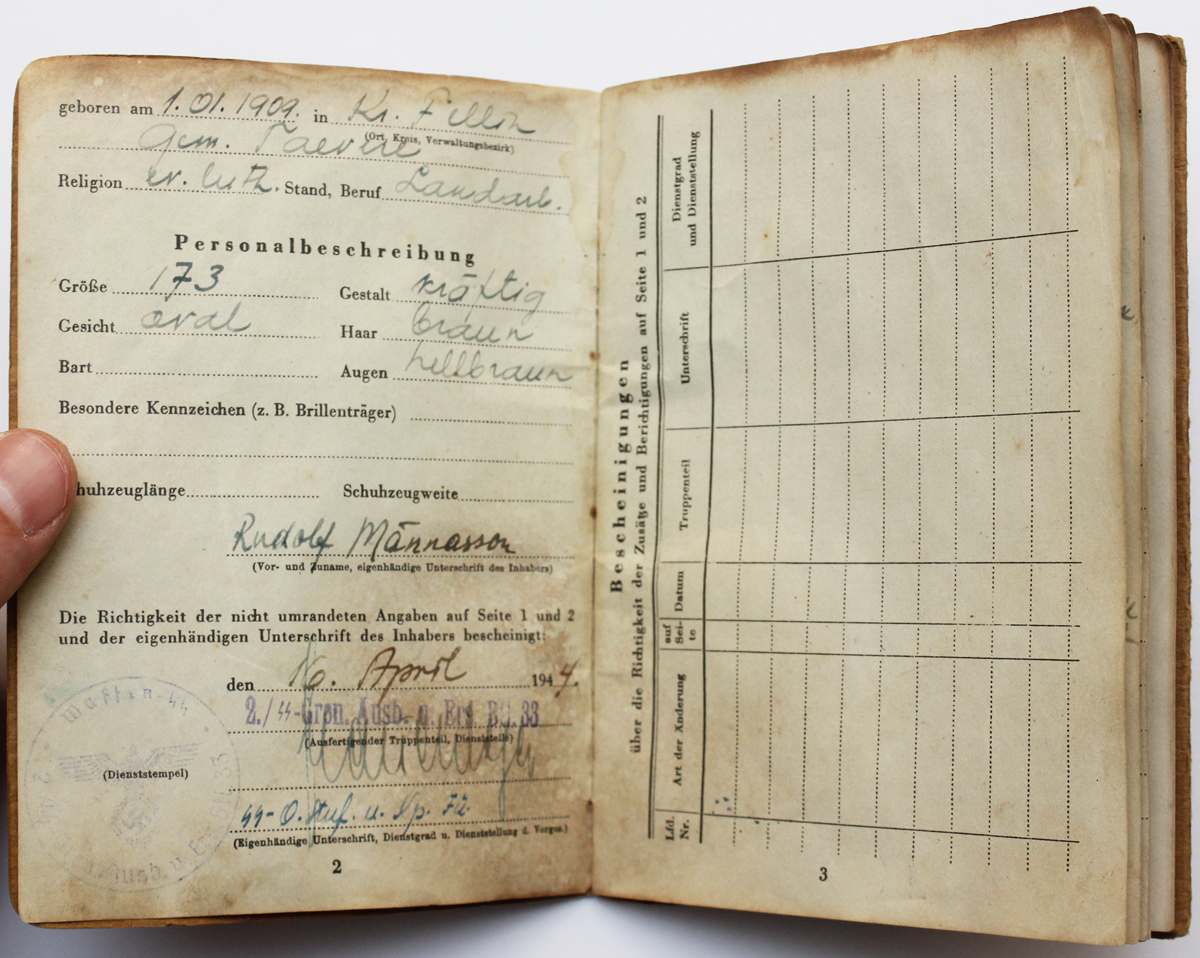 geboren am 1.01.1909. in Kr. Fellin
(Ort, Kreis, Verwaltungsbezirk)
Gem. Taevere
Religion ev. luth. Stand, Beruf Landarb.
Personalbeschreibung
Größe 173 Gestalt kräftig
Gesicht oval Haar braun
Bart Augen hellbraun
Besondere Kennzeichen (z. B. Brillenträger)
huhzeuglänge Schuhzeugweite
Rudolf Männasson
(Vor- und Zuname, eigenhändige Unterschrift des Inhabers)
Die Richtigkeit der nicht umrandeten Angaben auf Seite 1 und 2
und der eigenhändigen Unterschrift des Inhabers bescheinigt:
den 16. April 1944.
2./SS-Gren. Ausb. u. Ers. Btl. 33
(Ausfertigender Truppenteil, Dienststelle)
Waffen-SS
(Dienststempel)
SS-O.Stuf. u. Kp. Fü.
(Eigenhändige Unterschrift, Dienstgrad u. Dienststellung d. Vorges.)
2
Bescheinigungen
über die Richtigkeit der Zusätze und Berichtigungen auf Seite 1 und 2
Lfd. Nr.
Art der Änderung
auf Sei-te
Datum
Truppenteil
Unterschrift
Dienstgrad und Dienststellung
3